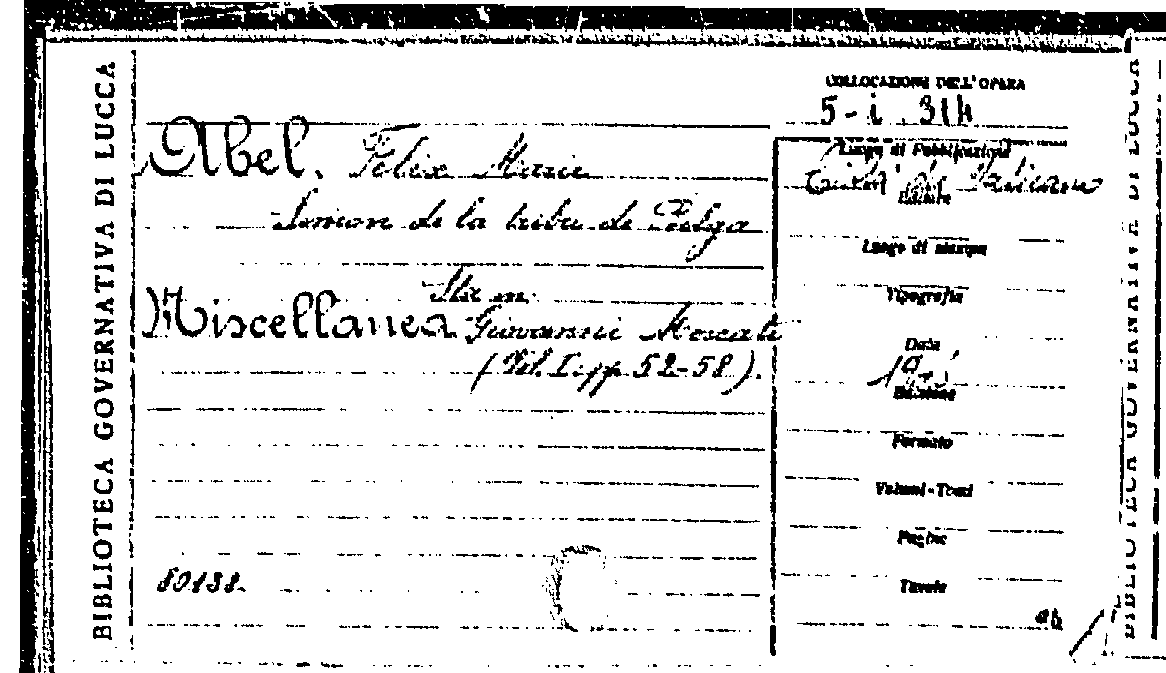 BIBLIOTECA GOVERNATIVA DI LUCCA
COLLOCAZIONE DELL'OPERA
5-i. 314
Abel. Felix Marie
Simon de la tribu de Bilga
Sta in:
Miscellanea Giovanni Mercati
(Vol. I. pp. 52-58).
80138.
Luogo di Pubblicazione
Città del Vaticano
Editore
Luogo di stampa
Tipografia
Data
Edizione
Formato
Volumi-Tomi
Pagine
Tavole
BIBLIOTECA GOVERNATIVA DI LUCCA